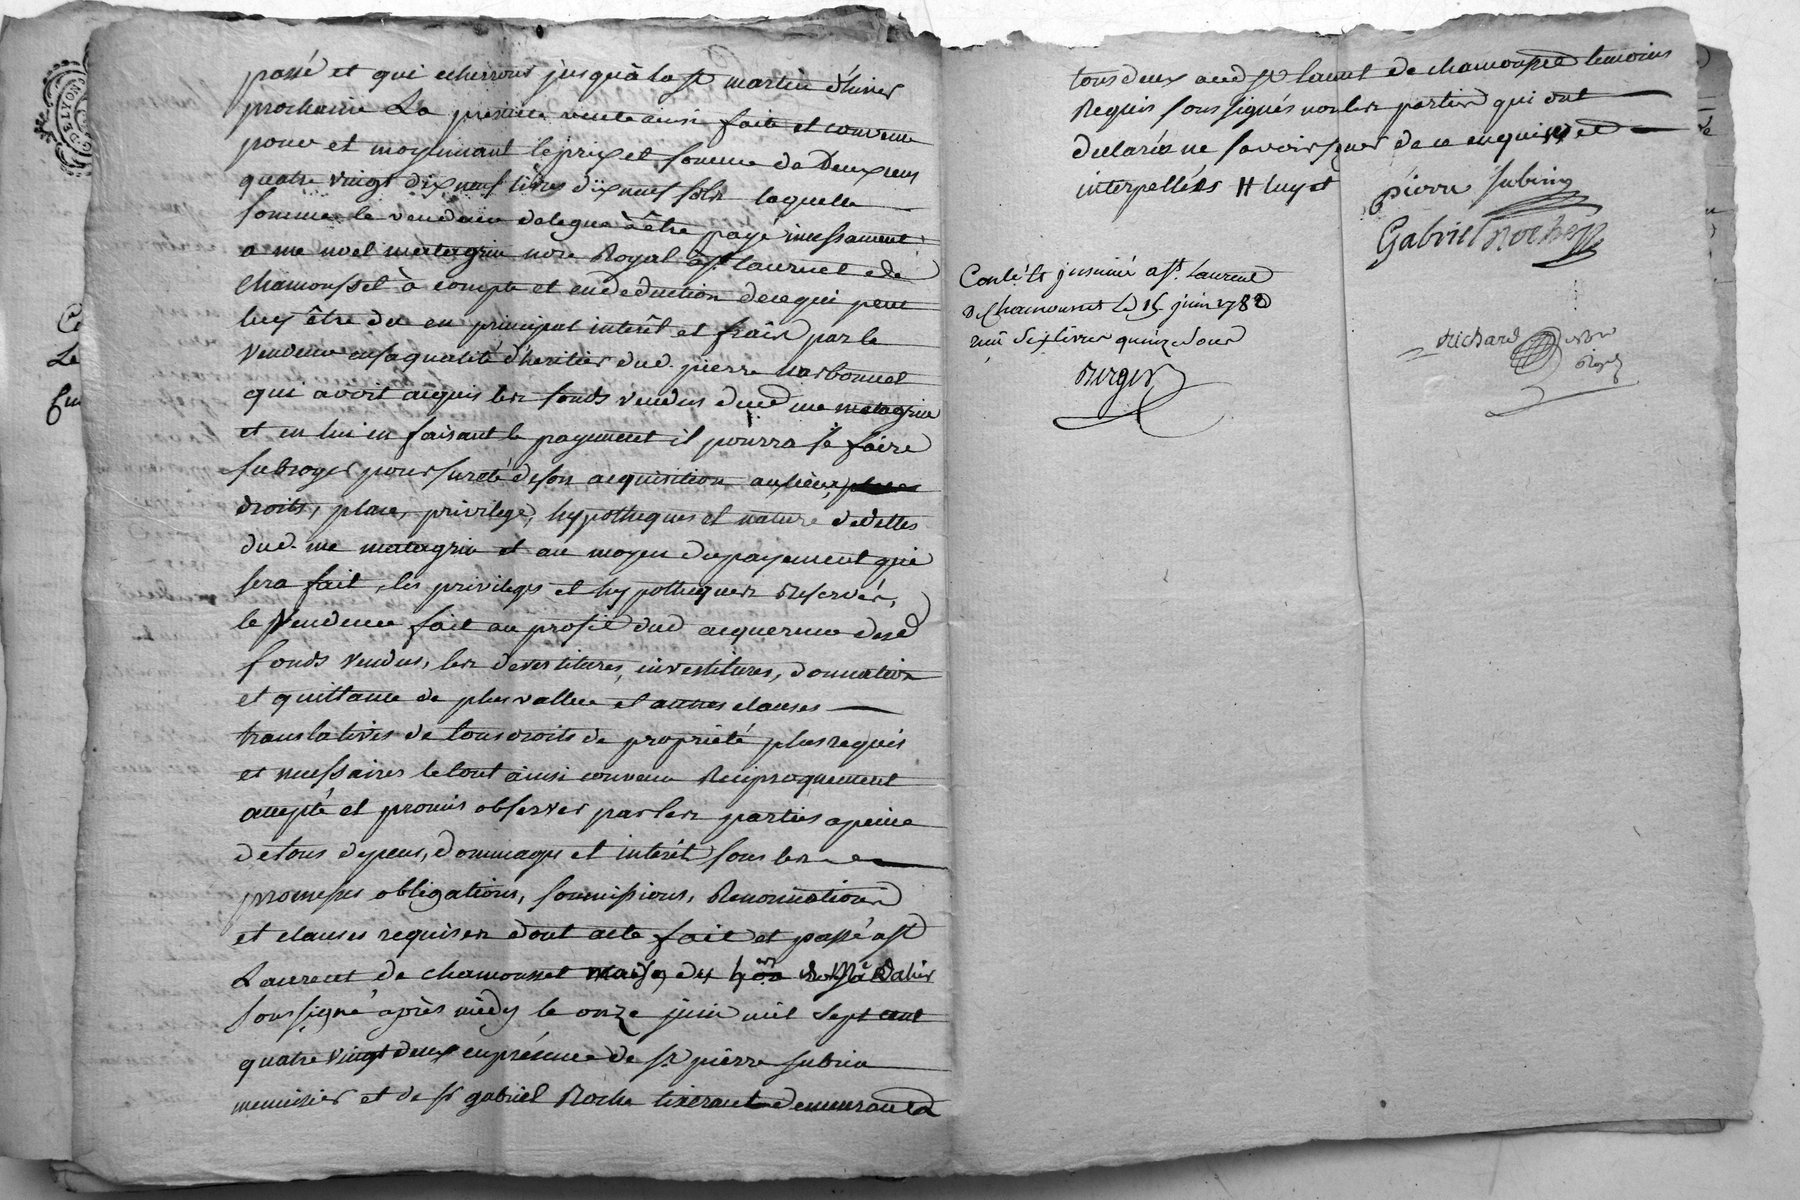 passé et qui echerrons jusqu'à la st martin d'hiver
prochaine La presente vente ainsi faite et convenue
pour et moyennant le prix et somme de Deux cens
quatre vingt dix neuf livres dix neuf sols laquelle
somme le vendeur delegue à être payé incessament
a me noel matagrin nore Royal a st laurent de
chamousset à compte et en deduction de ce qui peut
luy être du en principal interêt et frais par le
vendeur en sa qualité d'heritier dud. pierre narbonnet
qui avoit acquis les fonds vendus dud me matagrin
et en lui en faisant le payement il pourra se faire
subroger pour sureté de son acquisition au lieu,
droits, place, privilege, hypotheques et nature de dettes
dud. me matagrin et au moyen du payement qui
sera fait, les privileges et hypotheques Reservés,
le Vendeur fait au profit dud acquereur desd
fonds vendus, les devestitures, investitures, donnation
et quittance de plus vallue et autres clauses
translatives de tous droits de propriété plus requis
et necessaires le tout ainsi convenu Reciproquement
accepté et promis observer par les parties a peine
de tous depens, dommages et interêt sous les
promesses obligations, soumissions, Renonciations
et clauses requises dont acte fait et passé a st
Laurent de chamousset
soussigné après midy le onze juin mil sept cent
quatre vingt deux en présence de sr. pierre subrin
menuisier et de sr gabriel Roche tixerant demeurant a
tous deux aud st laurent de chamousset temoins
Requis soussignés non les parties qui ont
declaréz ne savoir signer de ce enquis et
interpellées # luy et
pierre subrin
Gabriel Roche
Conlé. et insinué a st. Laurent
de Chamousset le 15. juin 1782
reçu six livres quinze sous
Burger
Richard nore
Royal